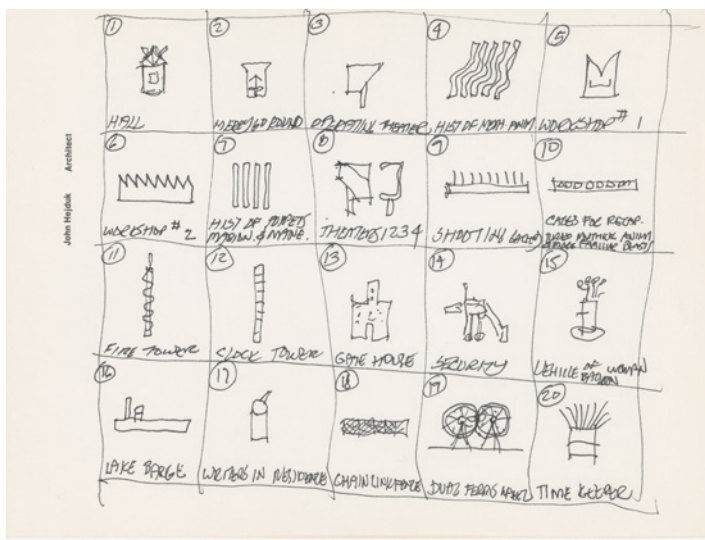 John Hejduk Architect
1
HALL
2
MERRY GO ROUND
3
OPERATING THEATER
4
HIST OF MECH. ANIM
5
WORKSHOP # 1
6
WORKSHOP # 2
7
HIST OF PUPPETS
MARION. & MANE.
8
THEATERS 1 2 3 4
9
SHOOTING
10
CAGES FOR RECAP.
11
FIRE TOWER
12
CLOCK TOWER
13
GATE HOUSE
14
SECURITY
15
VEHICLE OF WOMAN
16
LAKE BARGE
17
WRITERS IN RESIDENCE
18
CHAIN LINK FENCE
19
DUAL FERRIS WHEEL
20
TIME KEEPER